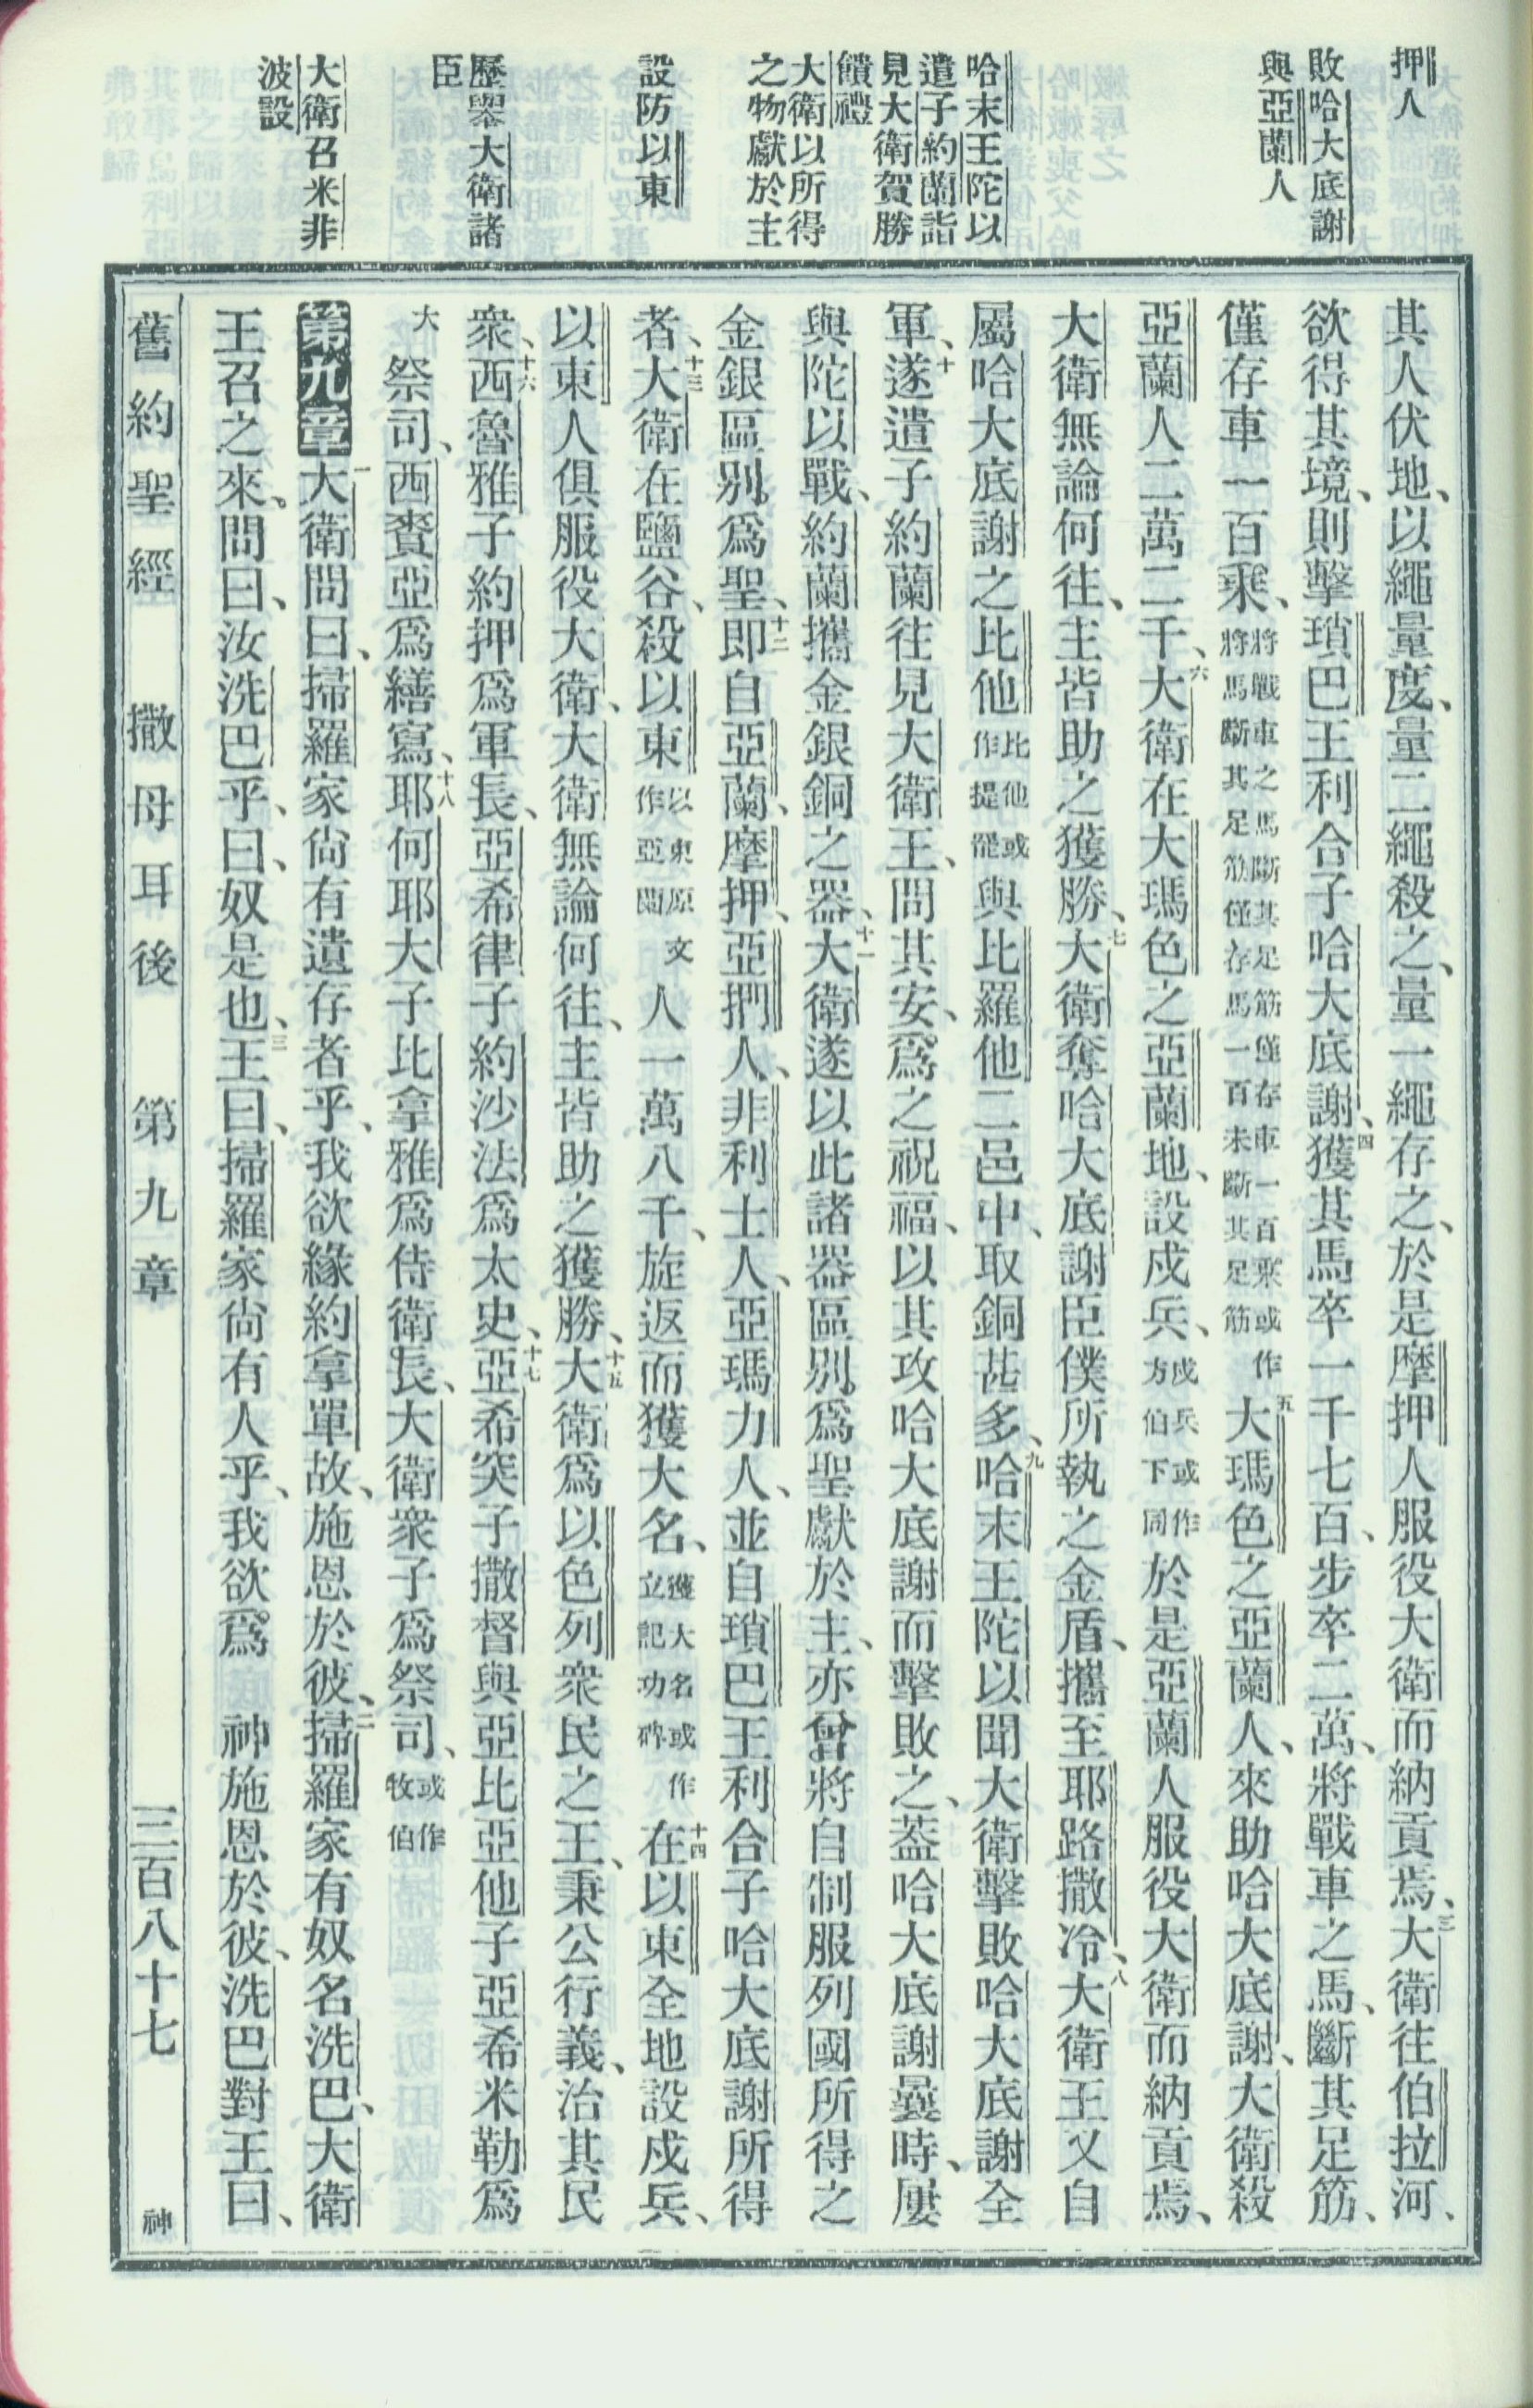 押人
敗哈大底謝
與亞蘭人
哈末王陀以
遣子約蘭詣
見大衛賀勝
饋禮
大衛以所得
之物獻於主
設防以東
歷舉大衛諸
臣
大衛召米非
波設
其人伏地、以繩量度、量二繩殺之、量一繩存之、於是摩押人服役大衛而納貢焉、三大衛往伯拉河、
欲得其境、則擊瑣巴王利合子哈大底謝、四獲其馬卒一千七百、步卒二萬、將戰車之馬、斷其足筋、
僅存車一百乘、將戰車之馬斷其足筋僅存車一百乘或作將馬斷其足筋僅存馬一百未斷其足筋五大瑪色之亞蘭人、來助哈大底謝、大衛殺
亞蘭人二萬二千、六大衛在大瑪色之亞蘭地、設戍兵、戍兵或作方伯下同於是亞蘭人服役大衛而納貢焉、
大衛無論何往、主皆助之獲勝、七大衛奪哈大底謝臣僕所執之金盾、攜至耶路撒冷、八大衛王又自
屬哈大底謝之比他比他或作提罷與比羅他二邑中、取銅甚多、九哈末王陀以聞大衛擊敗哈大底謝全
軍、十遂遣子約蘭往見大衛王、問其安、爲之祝福、以其攻哈大底謝而擊敗之、蓋哈大底謝曩時、屢
與陀以戰、約蘭攜金銀銅之器、十一大衛遂以此諸器區別爲聖獻於主、亦曾將自制服列國所得之
金銀區別爲聖、十二即自亞蘭、摩押、亞捫人、非利士人、亞瑪力人、並自瑣巴王利合子哈大底謝所得
者、十三大衛在鹽谷、殺以東以東原文作亞蘭人一萬八千、旋返而獲大名、獲大名或作立記功碑十四在以東全地設戍兵、
以東人俱服役大衛、大衛無論何往、主皆助之獲勝、十五大衛爲以色列衆民之王、秉公行義、治其民
衆、十六西魯雅子約押爲軍長、亞希律子約沙法爲太史、十七亞希突子撒督與亞比亞他子亞希米勒爲
大祭司、西賚亞爲繕寫、十八耶何耶大子比拿雅爲侍衛長、大衛衆子爲祭司、或作牧伯
第九章一大衛問曰、掃羅家尙有遺存者乎、我欲緣約拿單故、施恩於彼、二掃羅家有奴名洗巴、大衛
王召之來、問曰、汝洗巴乎、曰、奴是也、三王曰、掃羅家尙有人乎、我欲爲 神施恩於彼、洗巴對王曰、
舊約聖經 撒母耳後 第九章 三百八十七 神